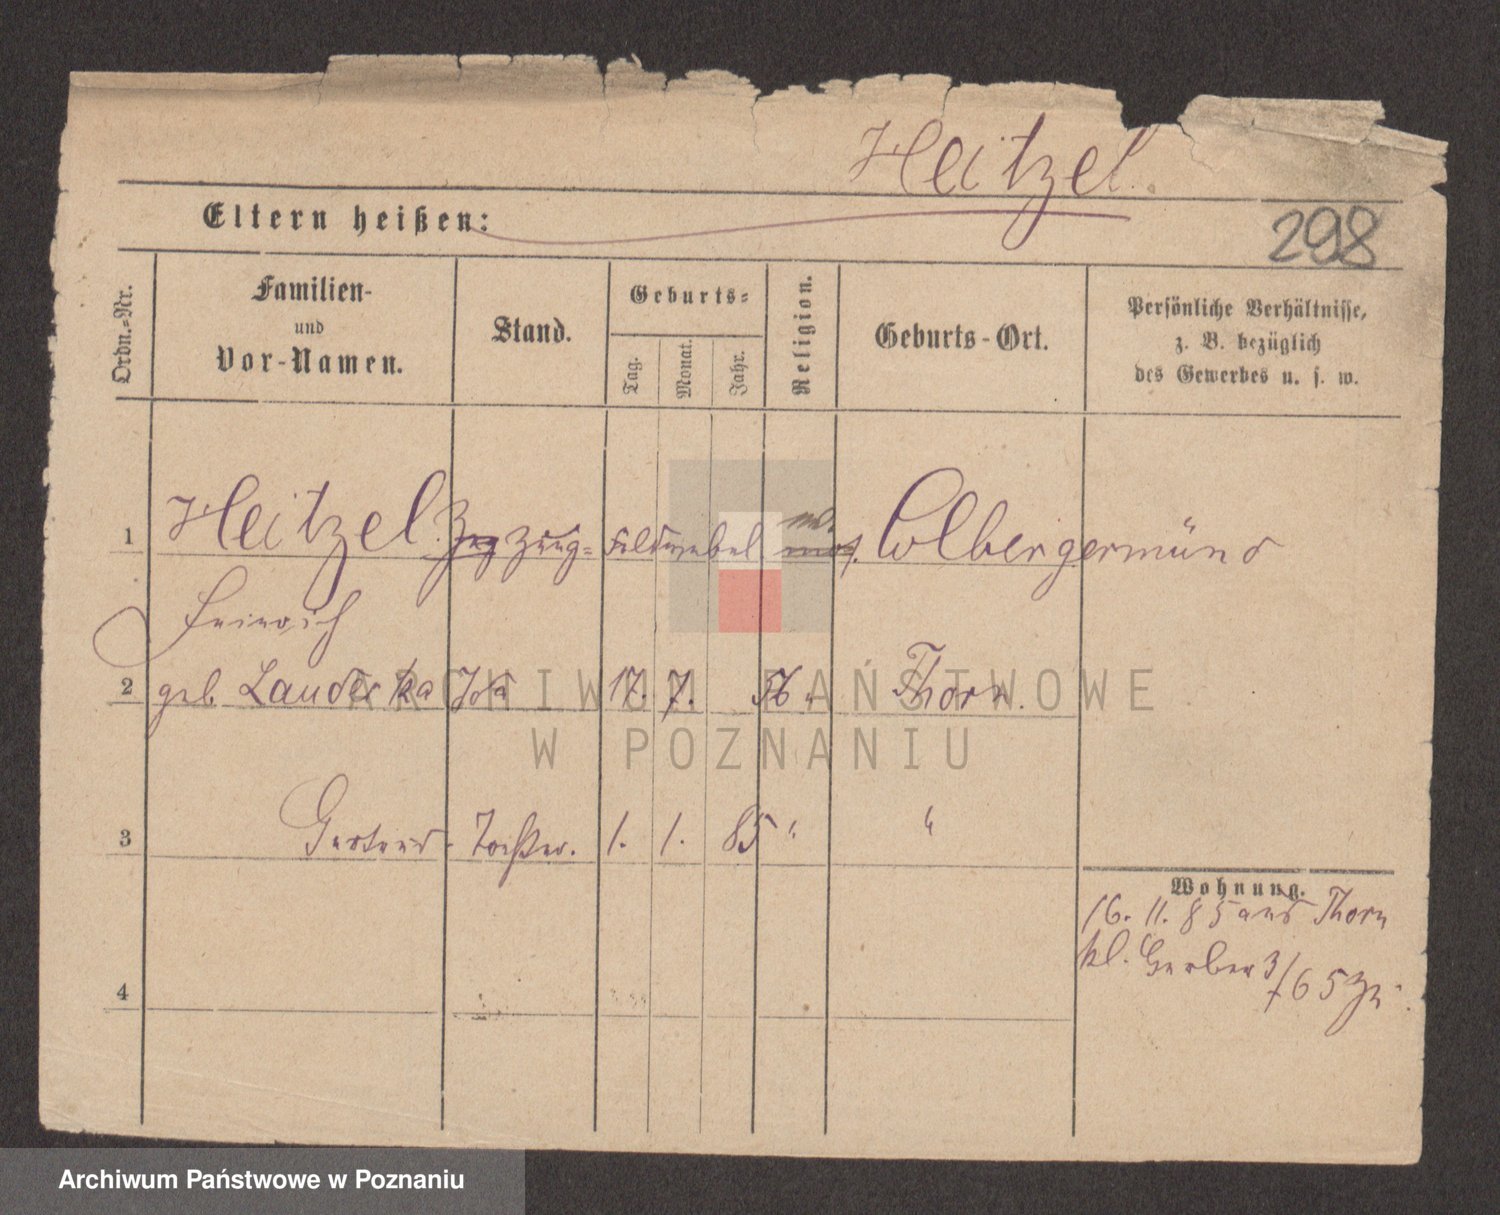 Heitzel.
Eltern heißen:
298
Ordn.-Nr.
Familien-
und
Vor-Namen.
Stand.
Geburts-
Tag.
Monat.
Jahr.
Religion.
Geburts-Ort.
Persönliche Verhältnisse,
z. B. bezüglich
des Gewerbes u. s. w.
1 Heitzel. Zeug-Feldwebel Colbergermünd
Heinrich
2 geb. Laudetzka Ida 17. 7. 56. Thorn.
3 Gertrud. Tochter. 1. 1. 85 " "
Wohnung.
16. 11. 85 aus Thorn
kl. Gerber 3/
4
ARCHIWUM PAŃSTWOWE
W POZNANIU
Archiwum Państwowe w Poznaniu